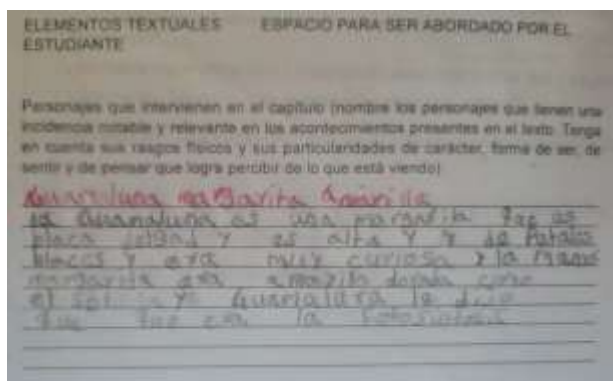 ELEMENTOS TEXTUALES ESPACIO PARA SER ABORDADO POR EL
ESTUDIANTE
Personajes que intervienen en el capítulo (nombre los personajes que tienen una
incidencia notable y relevante en los acontecimientos presentes en el texto. Tenga
en cuenta sus rasgos físicos y sus particularidades de carácter, forma de ser, de
sentir y de pensar que logra percibir de lo que está viendo)
Guanaluna margarita Amarilla
la Guanaluna es una margarita que es
flaca y es alta y de Petalos
blacos y era muy curiosa y la
margarita era amarilla como
el sol Guanaluna le dijo
que era la Fotosintesis